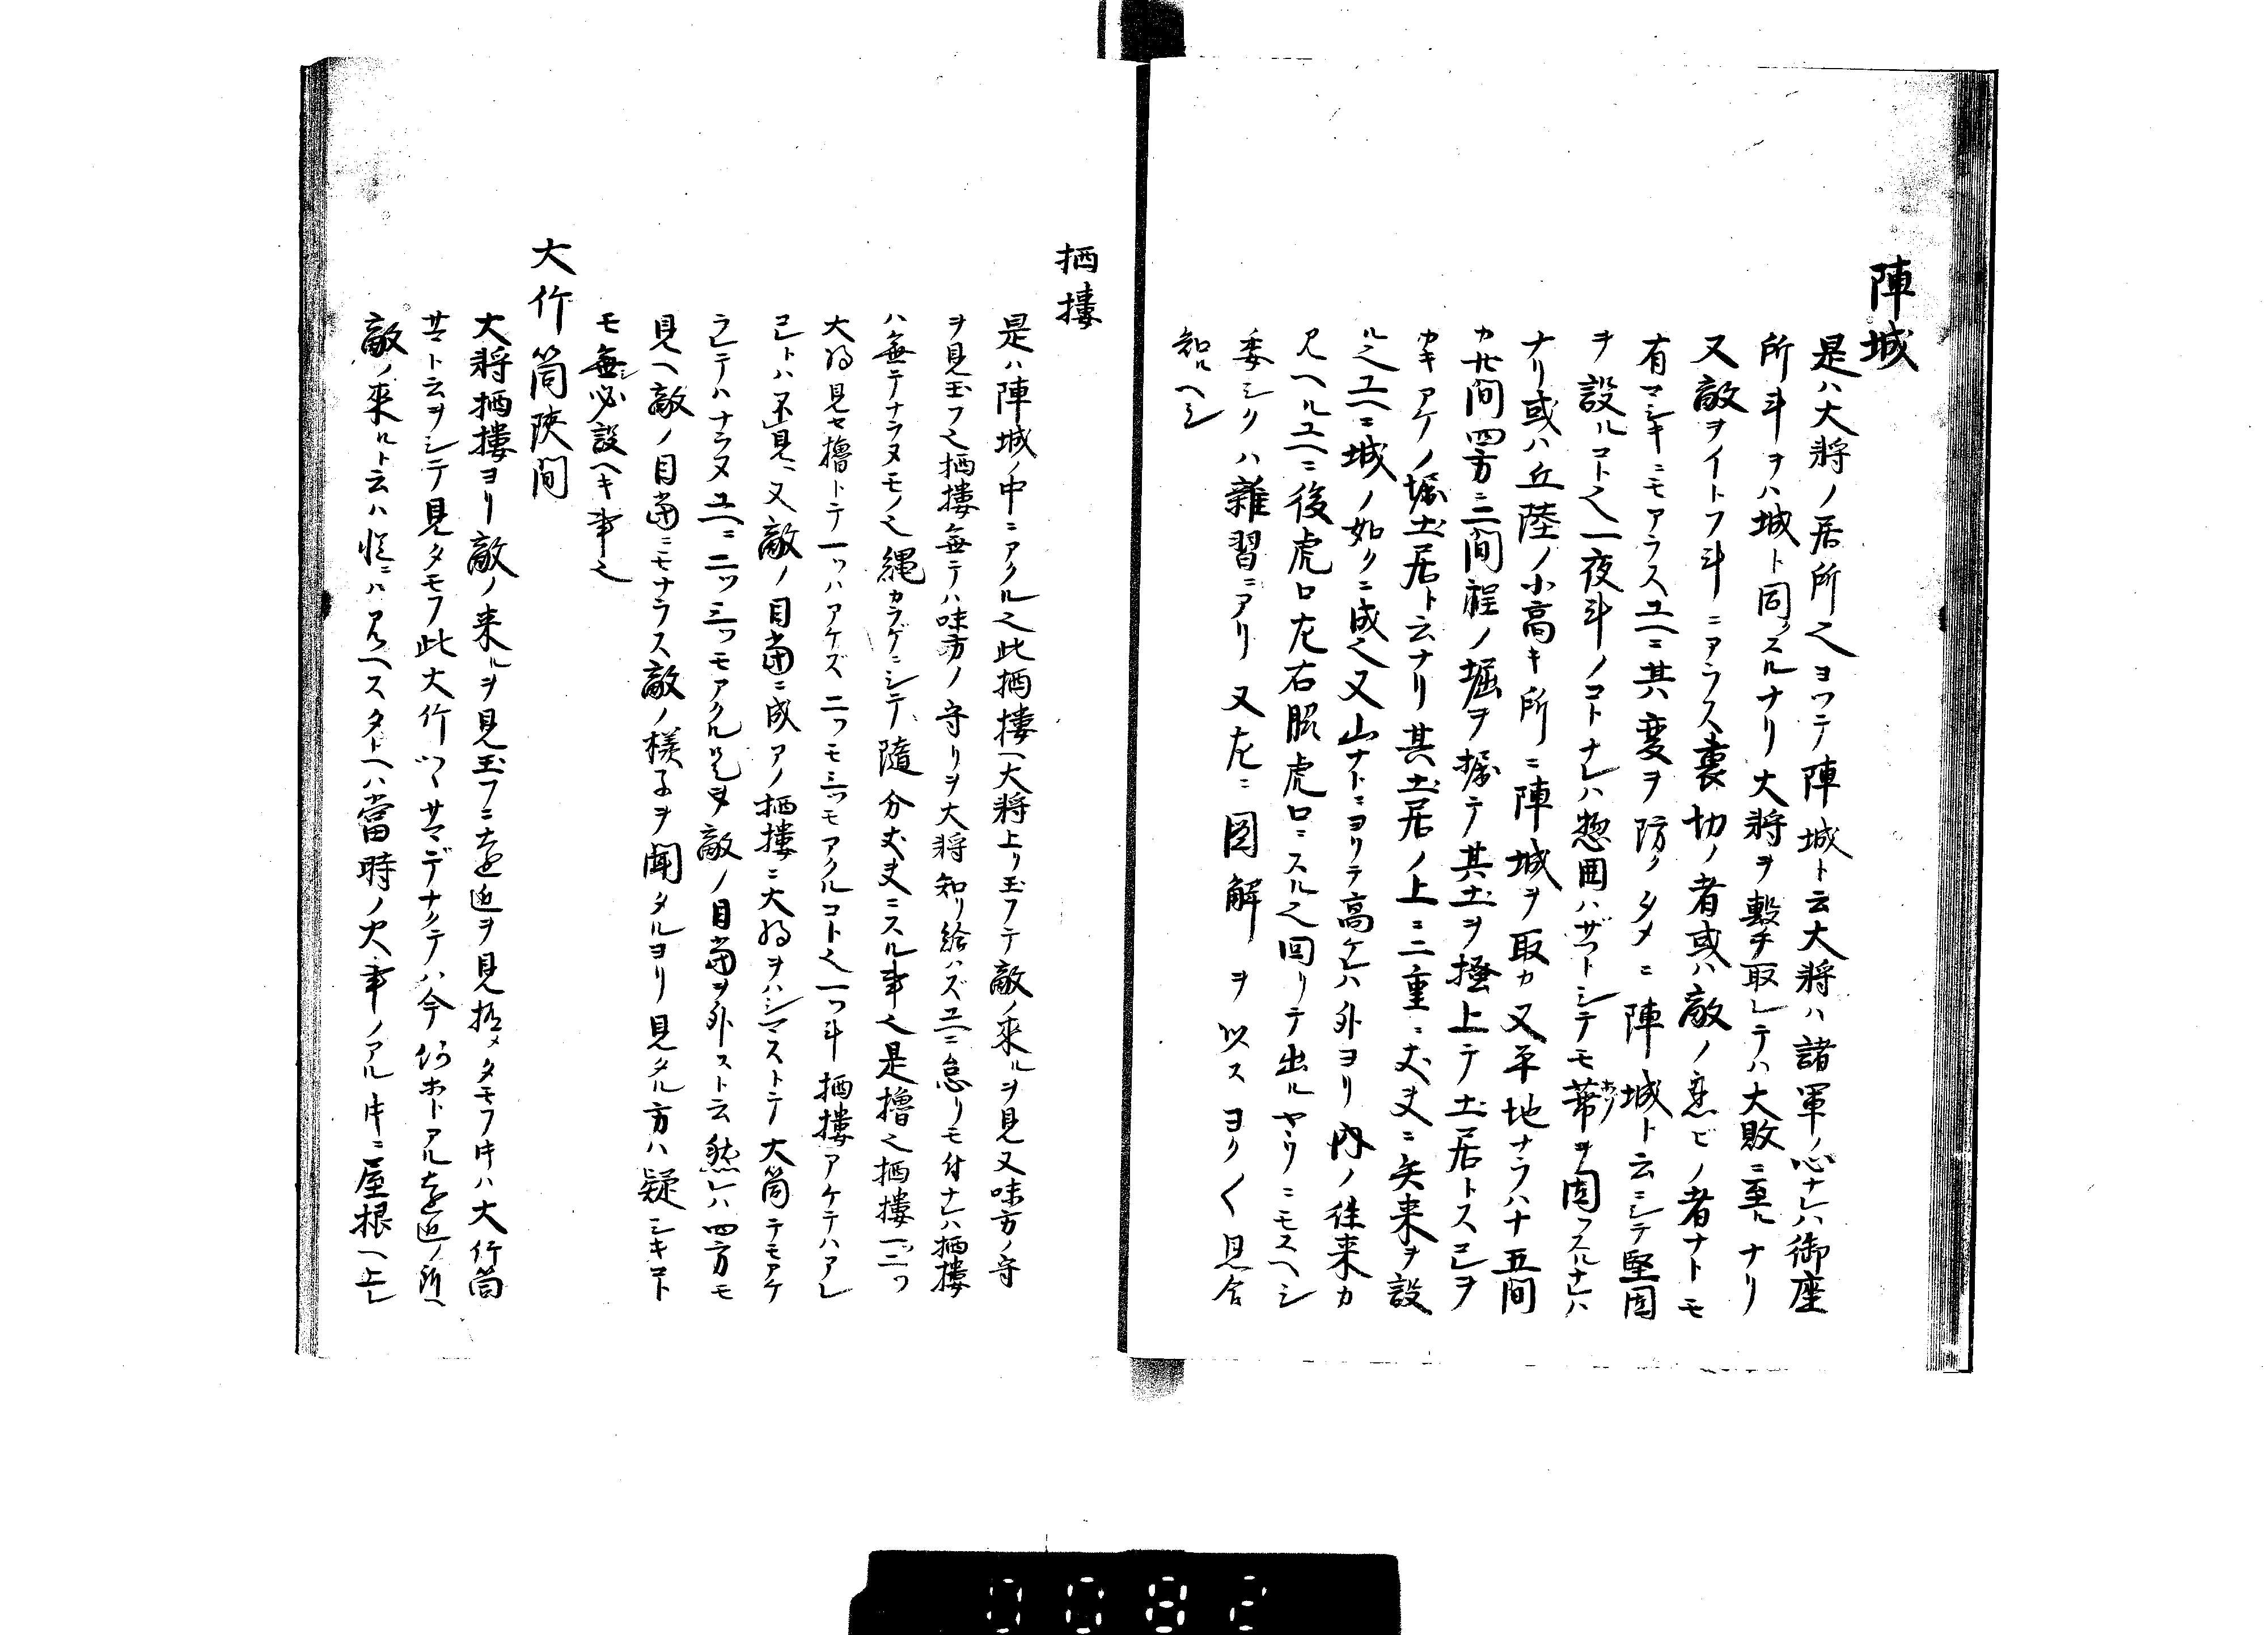 陣城
是ハ大将ノ居所之ヨツテ陣城ト云大将ハ諸軍ノ心ナレハ御座
所斗ヲハ城ト同クスルナリ大将ヲ撃チ取レテハ大敗ニ至ルナリ
又敵ヲイトフ斗ニアラス裏切ノ者或ハ敵ノ忍ビノ者ナトモ
有マシキニモアラスユヘニ其変ヲ防クタメニ陣城ト云ニシテ堅固
ヲ設ルコト之一夜斗ノコトナレハ惣囲ハザツトシテモ帯ヲ固フスルナレハ
ナリ或ハ丘陸ノ小高キ所ニ陣城ヲ取カ又平地ナラハ十五間
カ廿間四方ニ三間程ノ堀ヲ掘テ其土ヲ掻上テ土居トス已ヲ
カキアケノ堀土居ト云ナリ其土居ノ上ニ二重ニ丈夫ニ矢来ヲ設
ル之ユヘニ城ノ如クニ成之又山ナトニヨリテ高ケレハ外ヨリ内ノ往来カ
見ヘルユヘニ後虎口左右脇虎口ニスル之回リテ出ルヤウリニモスヘシ
委シクハ雑習ニアリ又左ニ図解ヲ以スヨク〱見合
知ルヘシ
栖摟
是ハ陣城ノ中ニアクル之此栖摟ヘ大将上リ玉フテ敵ノ来ルヲ見又味方ノ守
ヲ見玉フ之栖摟無テハ味方ノ守リヲ大将知リ給ハズユヘニ怠リモ付ナレハ栖摟
ハ無テナラヌモノ之縄カラゲニシテ随分丈夫ニスル事之是擼之栖摟一ツ二ツ
大将見セ擼トテ一ツハアケズ二ツモ三ツモアクルコト之一ツ斗栖摟アケテハアレ
已トハ不見ヘ又敵ノ目当ニ成アノ栖摟ニ大将ヲハシマストテ大筒テモアケ
ラレテハナラヌユヘニ二ツ三ツモアクル是ヲ敵ノ目当ヲ外スト云然レハ四方モ
見ヘ敵ノ目当ニモナラス敵ノ様子ヲ聞タルヨリ見タル方ハ疑シキコト
モ無シ必設ヘキ事之
大竹筒陝間
大将栖摟ヨリ敵ノ来ルヲ見玉フニ遠近ヲ見極メタモフ時ハ大竹筒
サマト云ヲシテ見タモフ此大竹ツヽサマデナクテハ今何ホトアル遠近ノ所ヘ
敵ノ来ルト云ハ慥ニハ見ヘスタトヘハ当時ノ火事ノアル時ニ屋根ヘ上レ
0082